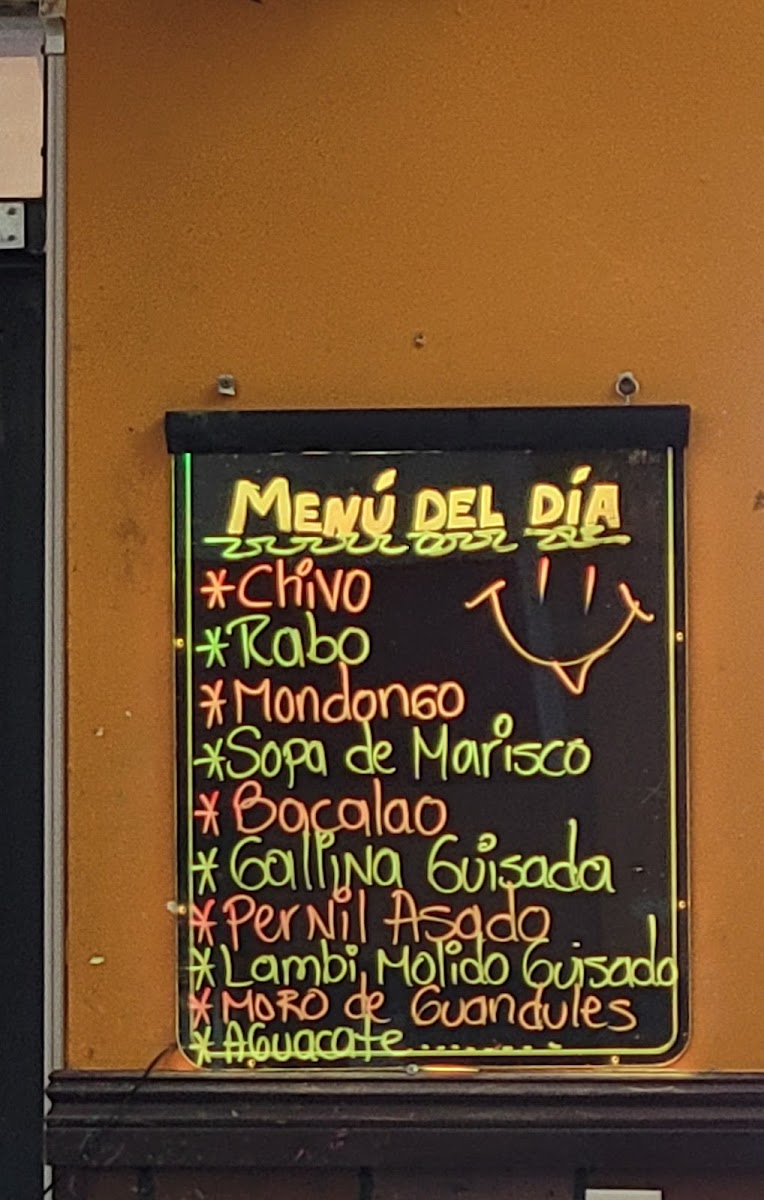 MENÚ DEL DÍA
*Chivo
*Rabo
*Mondongo
*Sopa de Marisco
*Bacalao
*Gallina Guisada
*Pernil Asado
*Lambi Molido Guisado
*MORO de Guandules
*Aguacate...........